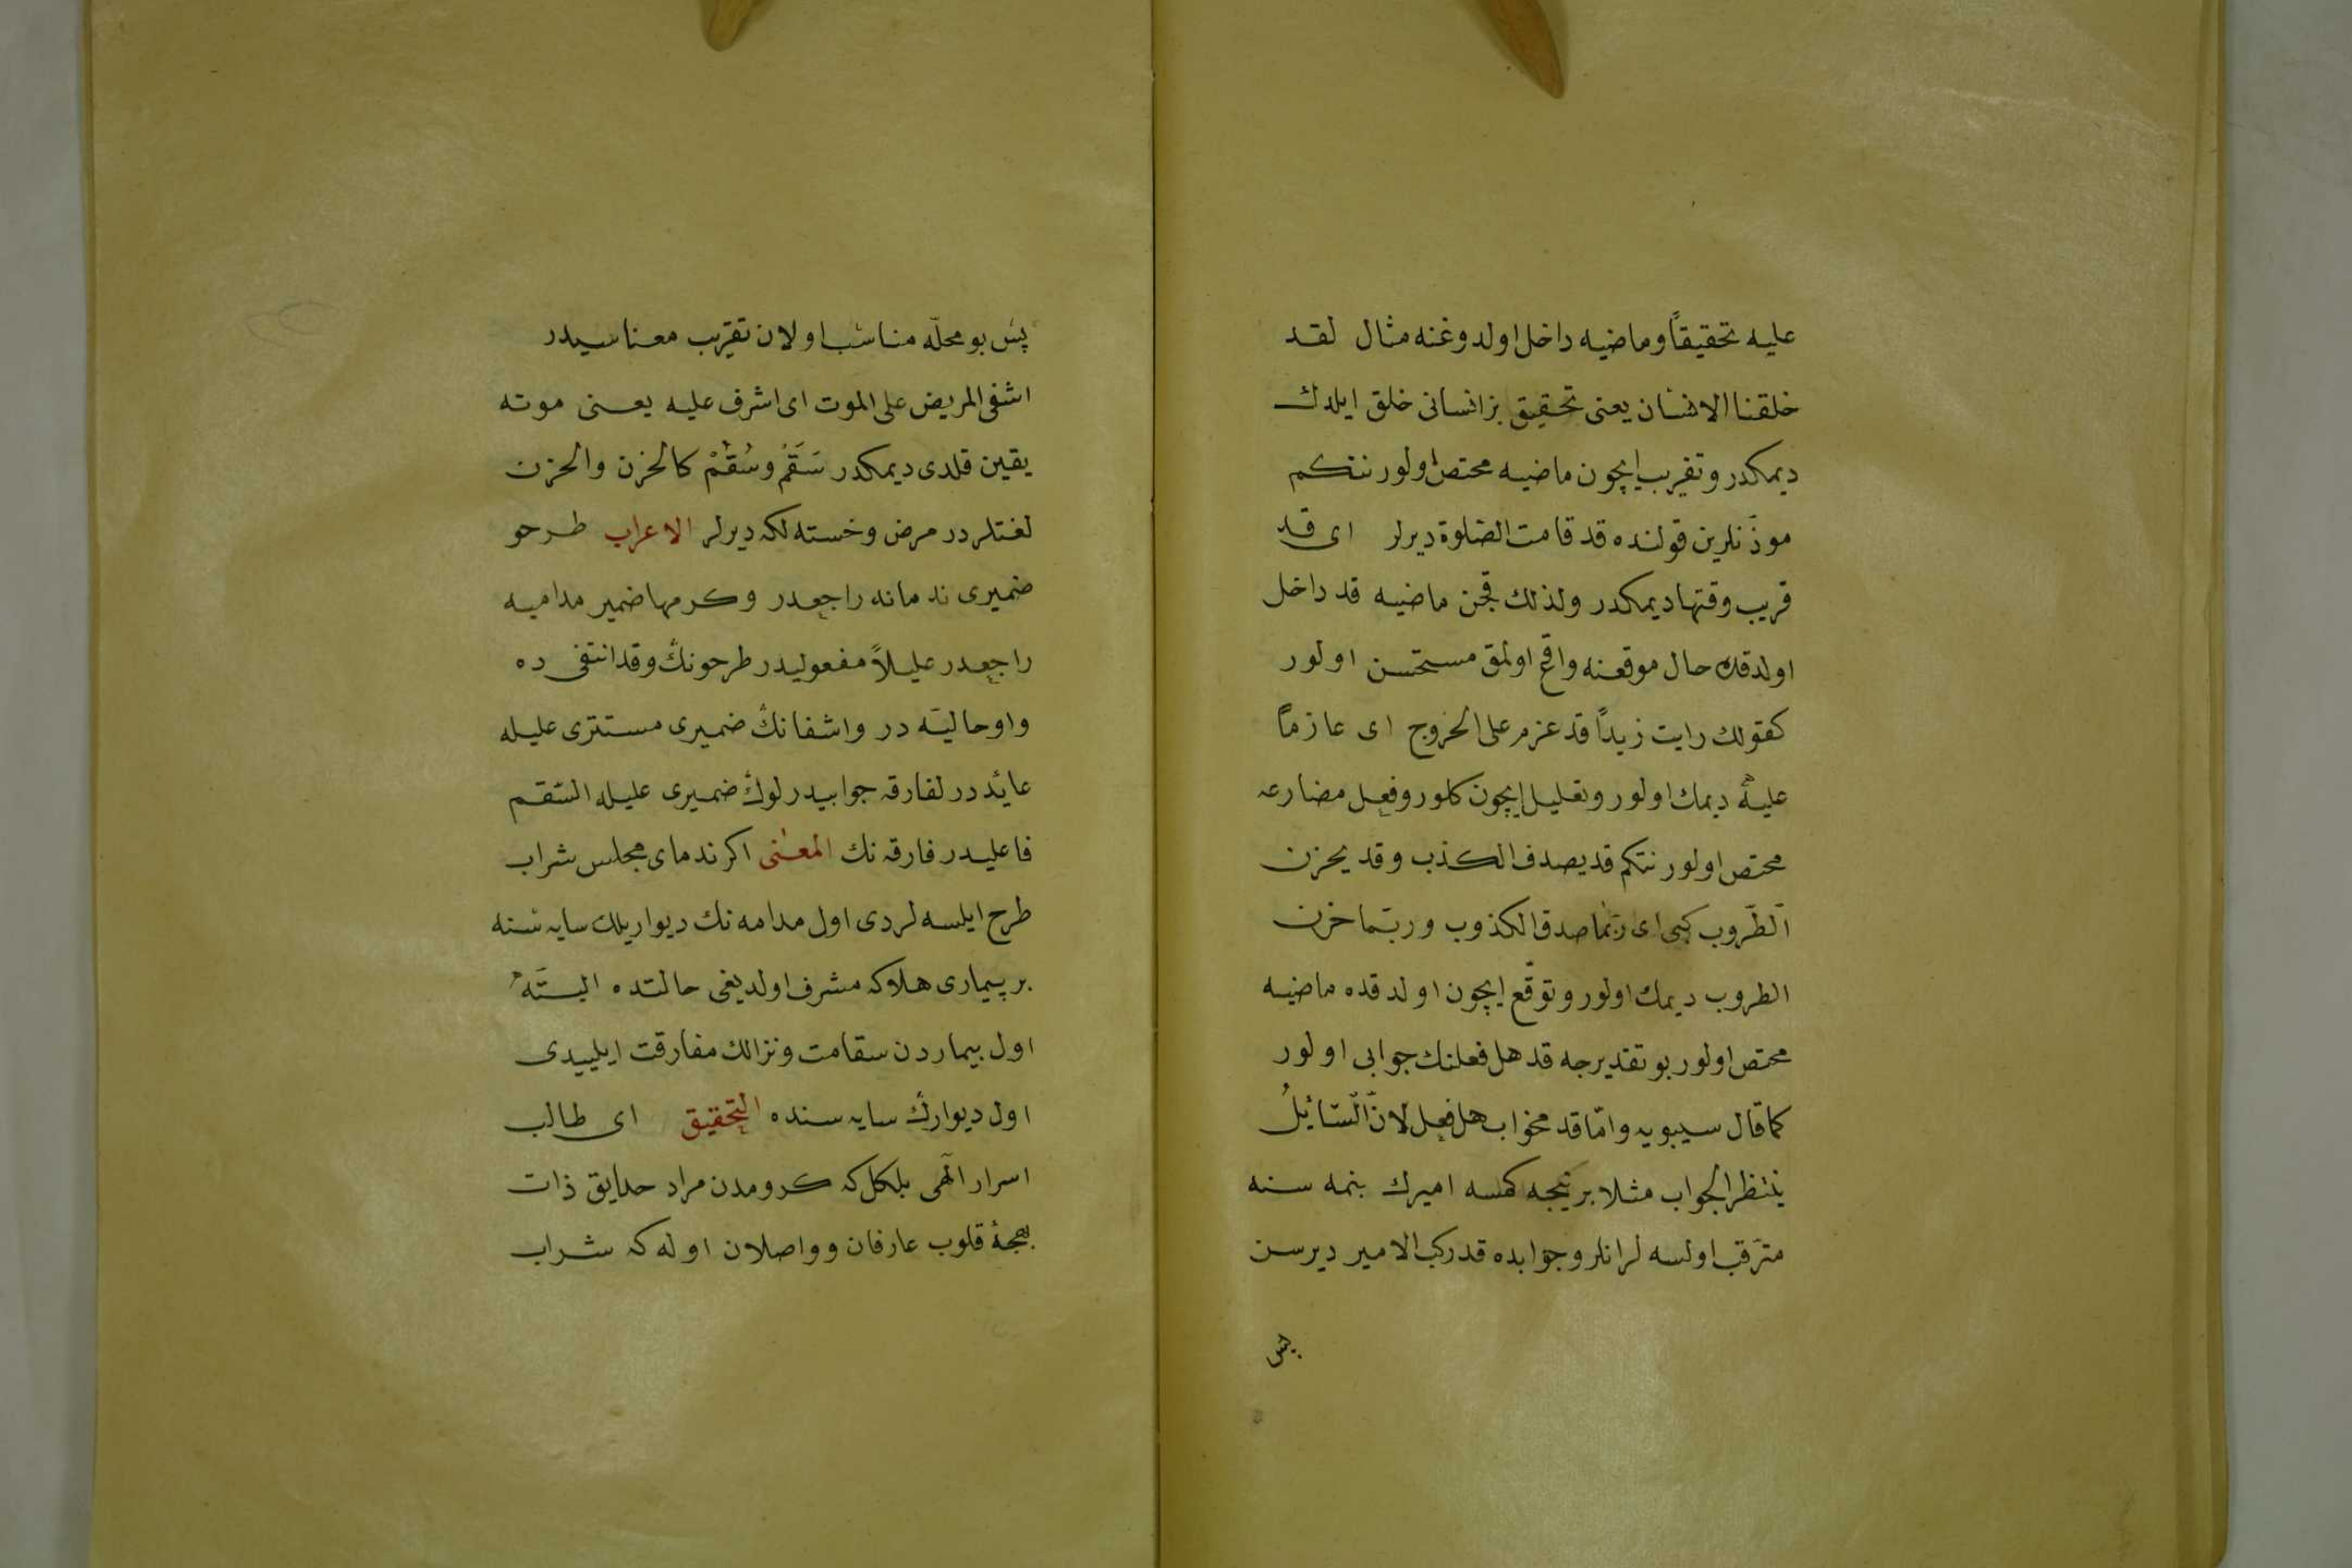 عليه تحقيقاً وماضيه داخل اولدوغنه مثال لقد
خلقنا الانسان يعنى تحقيق بز انسانى خلق ايلدك
ديمكدر وتقريب ايچون ماضيه مختص اولور نتكم
موذّنلرين قولنده قد قامت الصّلوة ديرلر اى قد
قريب وقتها ديمكدر ولذلك قچن ماضيه قد داخل
اولدقده حال موقعنه واقع اولمق مستحسن اولور
كقولك رايت زيداً قد عزم على الخروج اى عازماً
عليه ديمك اولور وتقليل ايچون كلور وفعل مضارعه
مختص اولور نتكم قد يصدف الكذب وقد يحزن
الطّروب كبى اى ربّما صدق الكذوب وربّما حزن
الطروب ديمك اولور وتوقّع ايچون اولدقده ماضيه
مختص اولور بو تقديرجه قد هل فعلنك جوابى اولور
كما قال سيبويه وامّا قد فجواب هل فعل لانّ السّائلُ
ينتظر الجواب مثلا بر نيچه كمسه اميرك بنمه سنه
مترقّب اولسه لر انلره جوابده قد ركب الامير ديرسن
پس
پس بو محلّه مناسب اولان تقريب معناسيدر
اشفى المريض على الموت اى اشرف عليه يعنى موته
يقين قلدى ديمكدر سَقَمْ وسُقْمْ كالحزن والحزن
لغتلردر مرض وخسته لكه ديرلر الاعراب طرحو
ضميرى ندمانه راجعدر وكرمها ضمير مداميه
راجعدر عليلاً مفعوليدر طرحونك وقد انتفى ده
واو حاليّه در واشفانك ضميرى مستترى عليله
عائد در لفارقه جوابيدر لوك ضميرى عليله السّقم
فاعليدر فارقه نك المعنى اكر ندماى مجلس شراب
طرح ايلسه لردى اول مدامه نك ديواريلك سايه سنه
بر پيمارى هلاكه مشرف اولديغى حالتده البتّه
اول بيماردن سقامت ونزالك مفارقت ايليدى
اول ديوارك سايه سنده التحقيق اى طالب
اسرار الٓهى بلكل كه كرومدن مراد حدايق ذات
بهجهٔ قلوب عارفان وواصلان اوله كه شراب